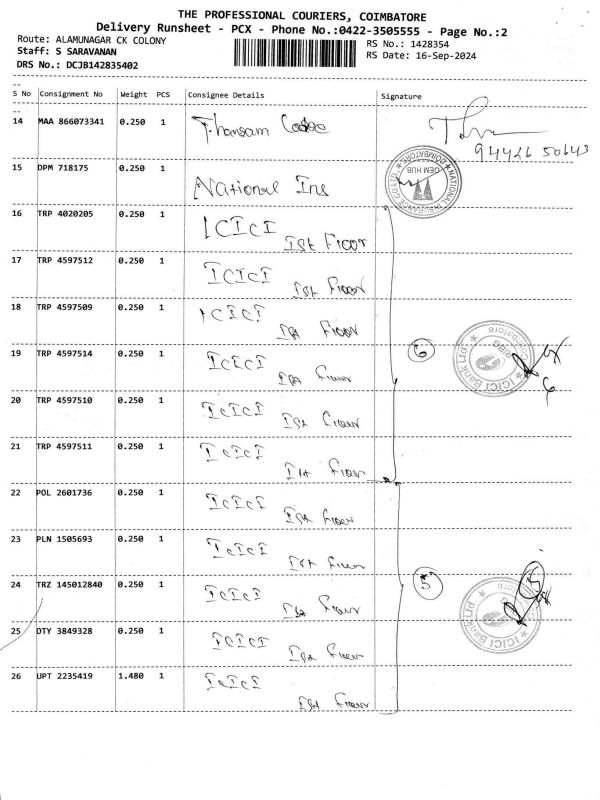 THE PROFESSIONAL COURIERS, COIMBATORE
Delivery Runsheet - PCX - Phone No.:0422-3505555 - Page No.:2
Route: ALAMUNAGAR CK COLONY
RS No.: 1428354
Staff: S SARAVANAN
RS Date: 16-Sep-2024
DRS No.: DCJB142835402
S No Consignment No Weight PCS Consignee Details Signature
14 MAA 866073341 0.250 1
94426 50643
15 DPM 718175 0.250 1 National Ins
NATIONAL INSURANCE CO LTD COIMBATORE
OEM HUB
16 TRP 4020205 0.250 1 ICICI
Ist Floor
17 TRP 4597512 0.250 1 ICICI
Ist Floor
18 TRP 4597509 0.250 1 ICICI
Ist Floor
19 TRP 4597514 0.250 1 ICICI
Ist Floor
6
ICICI Bank Ltd
Coimbatore
6
20 TRP 4597510 0.250 1 ICICI
Ist Floor
21 TRP 4597511 0.250 1 ICICI
Ist Floor
22 POL 2601736 0.250 1 ICICI
Ist Floor
23 PLN 1505693 0.250 1 ICICI
Ist Floor
24 TRZ 145012840 0.250 1 ICICI
Ist Floor
5
5
ICICI Bank Ltd
25 OTY 3849328 0.250 1 ICICI
Ist Floor
26 UPT 2235419 1.480 1 ICICI
Ist Floor